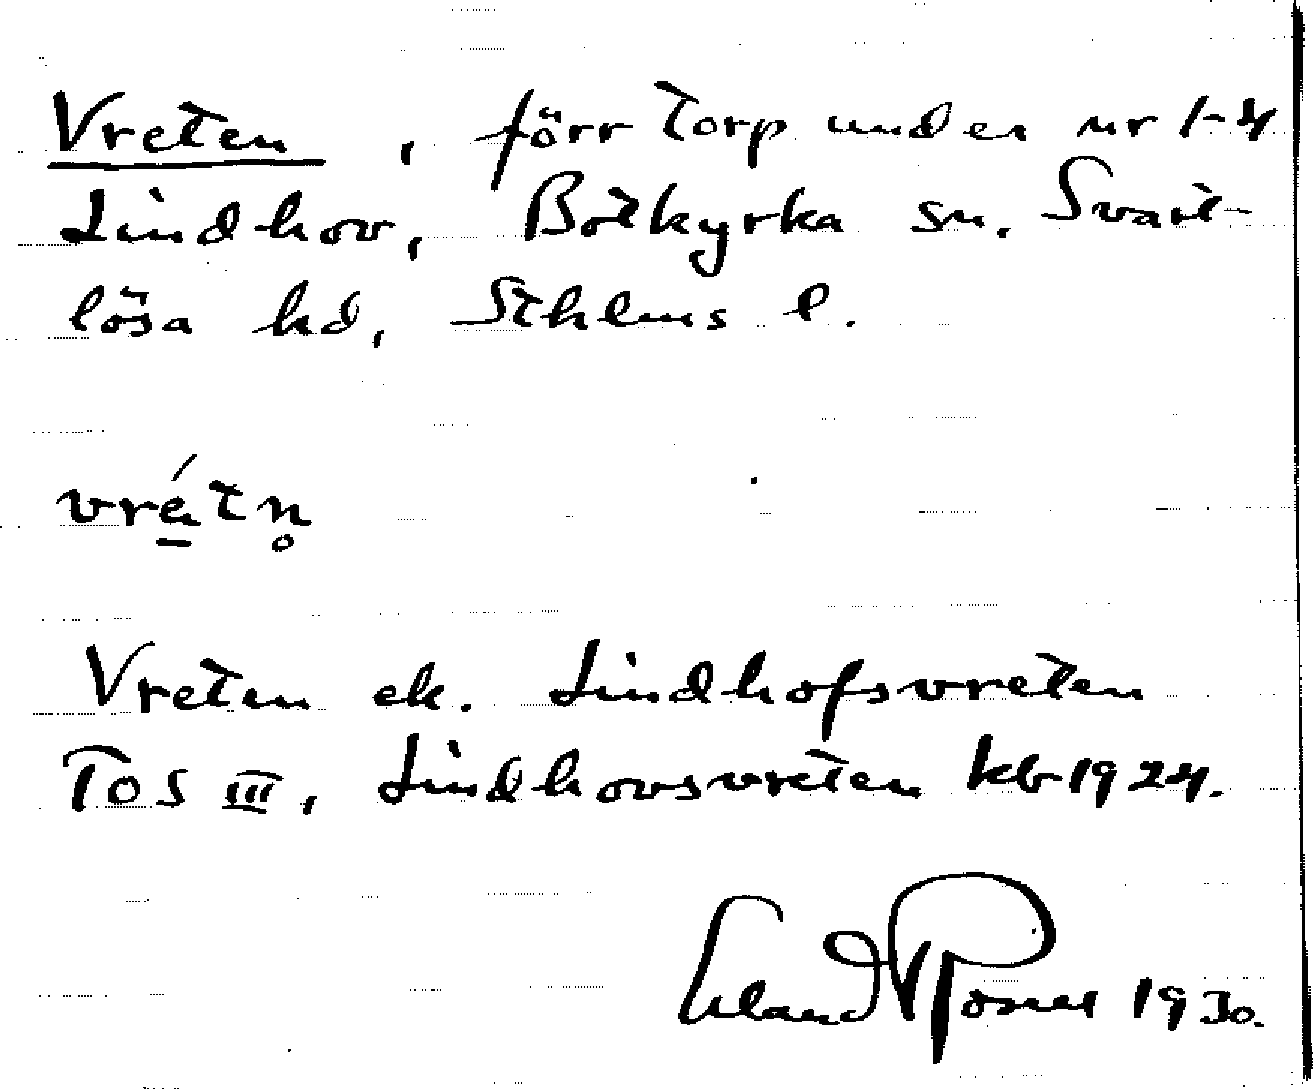 Vreten, förr torp under nr 1-4
Lindhov, Botkyrka sn. Svart-
lösa hd, Sthlms l.
vrǻtn̥
Vreten ek. Lindhofsvreten
TOS III, Lindhovsvreten kb 1924.
Erland Rosell 1930.